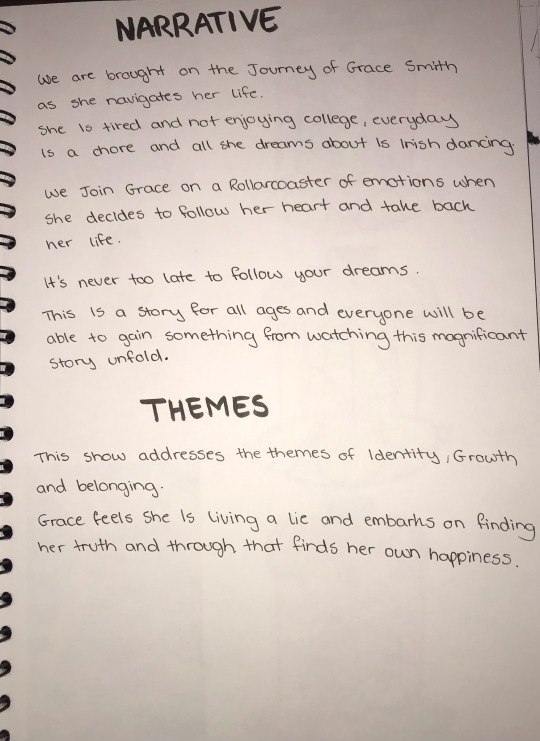 NARRATIVE
We are brought on the Journey of Grace Smith
as she navigates her life.
She Is tired and not enjoying college, everyday
Is a chore and all she dreams about Is Irish dancing.
We Join Grace on a Rollarcoaster of emotions when
She decides to follow her heart and take back
her life.
It's never too late to follow your dreams.
This Is a Story for all ages and everyone will be
able to gain something from watching this magnificant
Story unfold.
THEMES
This show addresses the themes of Identity, Growth
and belonging.
Grace feels She Is Living a lie and embarks on finding
her truth and through that finds her own happiness.